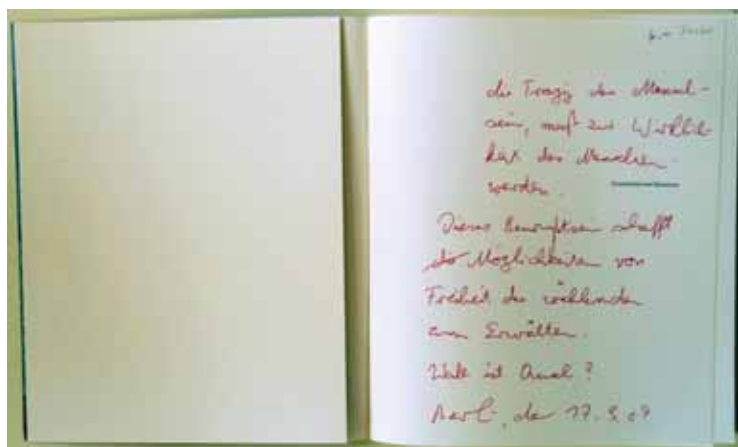 die Tragig des Mensch-
sein, muß zur Wirklich-
keit des Menschen
werden.
Dieses Bewußtsein schafft
die Möglichkeiten von
Freiheit des wählenden
zum Erwählten.
Wahl ist Qual?
den 17. 3. 09